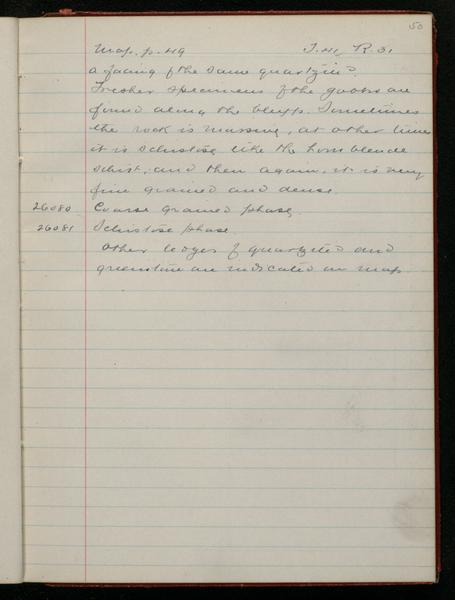 50
Map. p. 49 T. 41, R. 31
a facing of the same quartzite.
Fresher specimens of the gabbro are
found along the bluff. Sometimes
the rock is massive, at other times
it is schistose like the hornblende
schist, and then again, it is very
fine grained and dense.
26080 Coarse grained phase.
26081 Schistose phase.
Other ledges of quartzite and
greenstone are indicated on map.